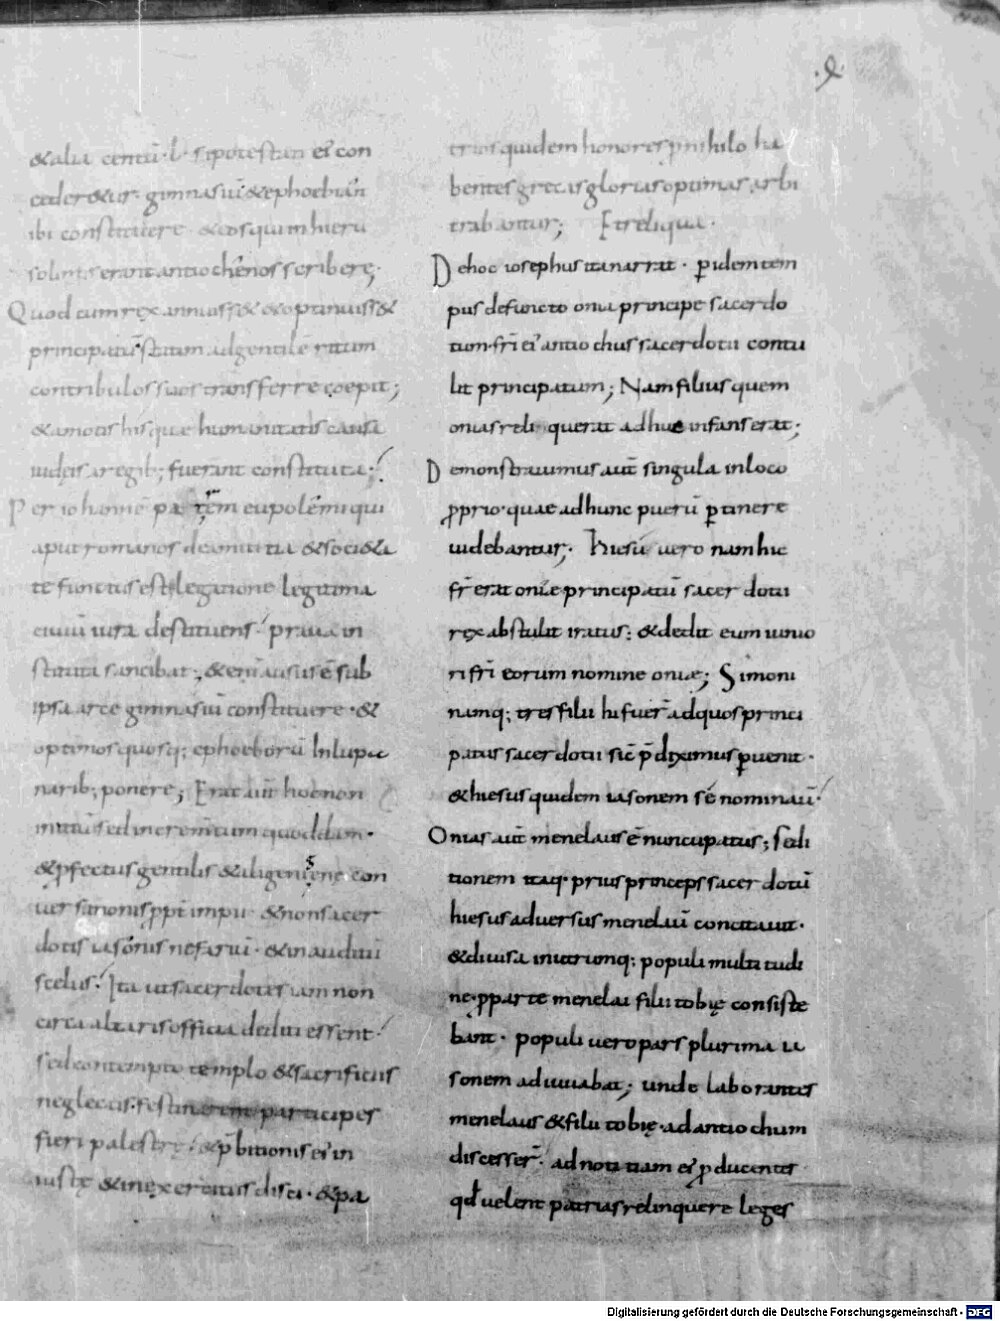 &alia centū·l· si potestati ei' con
ceder&ur· gimnasiū &ephoebiā
ibi constituere &eos qui in hieru
solimis erant antiochēnos scribere;
Quod cum rex annuiss& &optinuiss&
principatū statim ad gentilem ritum
contribulos suos transferre coepit;
&amotis his quae humanitatis causa
iudeis a regib; fuerant constituta;
Per iohannē patrēm eupolemi qui
aput romanos de amicitia &soci&a
te functus est legatione legitima
ciuiū iura destituens praua in
stituta sancibat; &eni ausus ē sub
ipsa arce gimnasiū constituere ·&
optimos quosq; ephoeborū In lupa
narib; ponere; Erat aut hoc non
initiū sed incrementum quoddam·
&pfectus gentilis &aligenigene con
uersationis ppt impii &non sacer
dotis iasonis nefariū· &inauditū
scelus; Ita ut sacerdotes iam non
circa altaris officia dediti essent
sed contempto templo &sacrificiis
neglectis festinarent participes
fieri palestrę· &p̄bitionis ei' in
iustę &in exercitiis disci· &pa
trios quidem honores p nihilo ha
bentes grecas glorias optimas arbi
trabantur; Et reliqua·
De hoc iosephus ita narrat· pidem tem
pus defuncto onia principe sacerdo
tum· frī ei' antiochus sacerdotii contu
lit principatum; Nam filius quem
onias reliquerat adhuc infans erat;
Demonstrauimus aut singula in loco
pprio· quae ad hunc puerū ptinere
uidebantur; Hiesū uero nam hic
fr̄ erat oniae principatū sacerdotii
rex abstulit iratus; &dedit eum iunio
ri frī eorum nomine oniae; Simoni
namq; tres filii hi fuer̄ ad quos princi
patus sacerdotii sic̄ p̄diximus puenit·
&hiesus quidem iasonem se nominauit
Onias aut menelaus ē nuncupatus; sedi
tionem itaq· prius princeps sacerdotū
hiesus aduersus menelaū concitauit·
&diuisa in utrumq; populi multitudi
ne· p parte menelai filii tobię consiste
bant· populi uero pars plurima ia
sonem adiuuabat; unde laborantes
menelaus &filii tobię· ad antiochum
discesser̄· ad notitiam ei' pducentes
qd uelent patrias relinquere leges